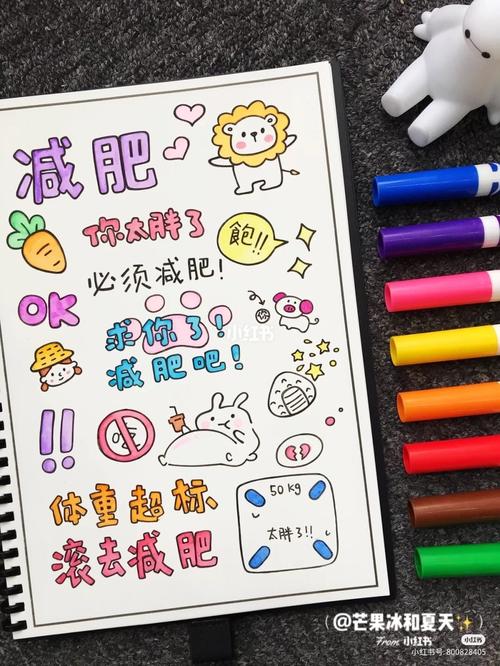 减肥
你太胖了
飽!!
必须减肥!
OK
求你了!
减肥吧!
小红书
!!
体重超标
滚去减肥
50 kg
太胖了!!
@芒果冰和夏天✨
From 小红书
小红书
小红书号:800828405